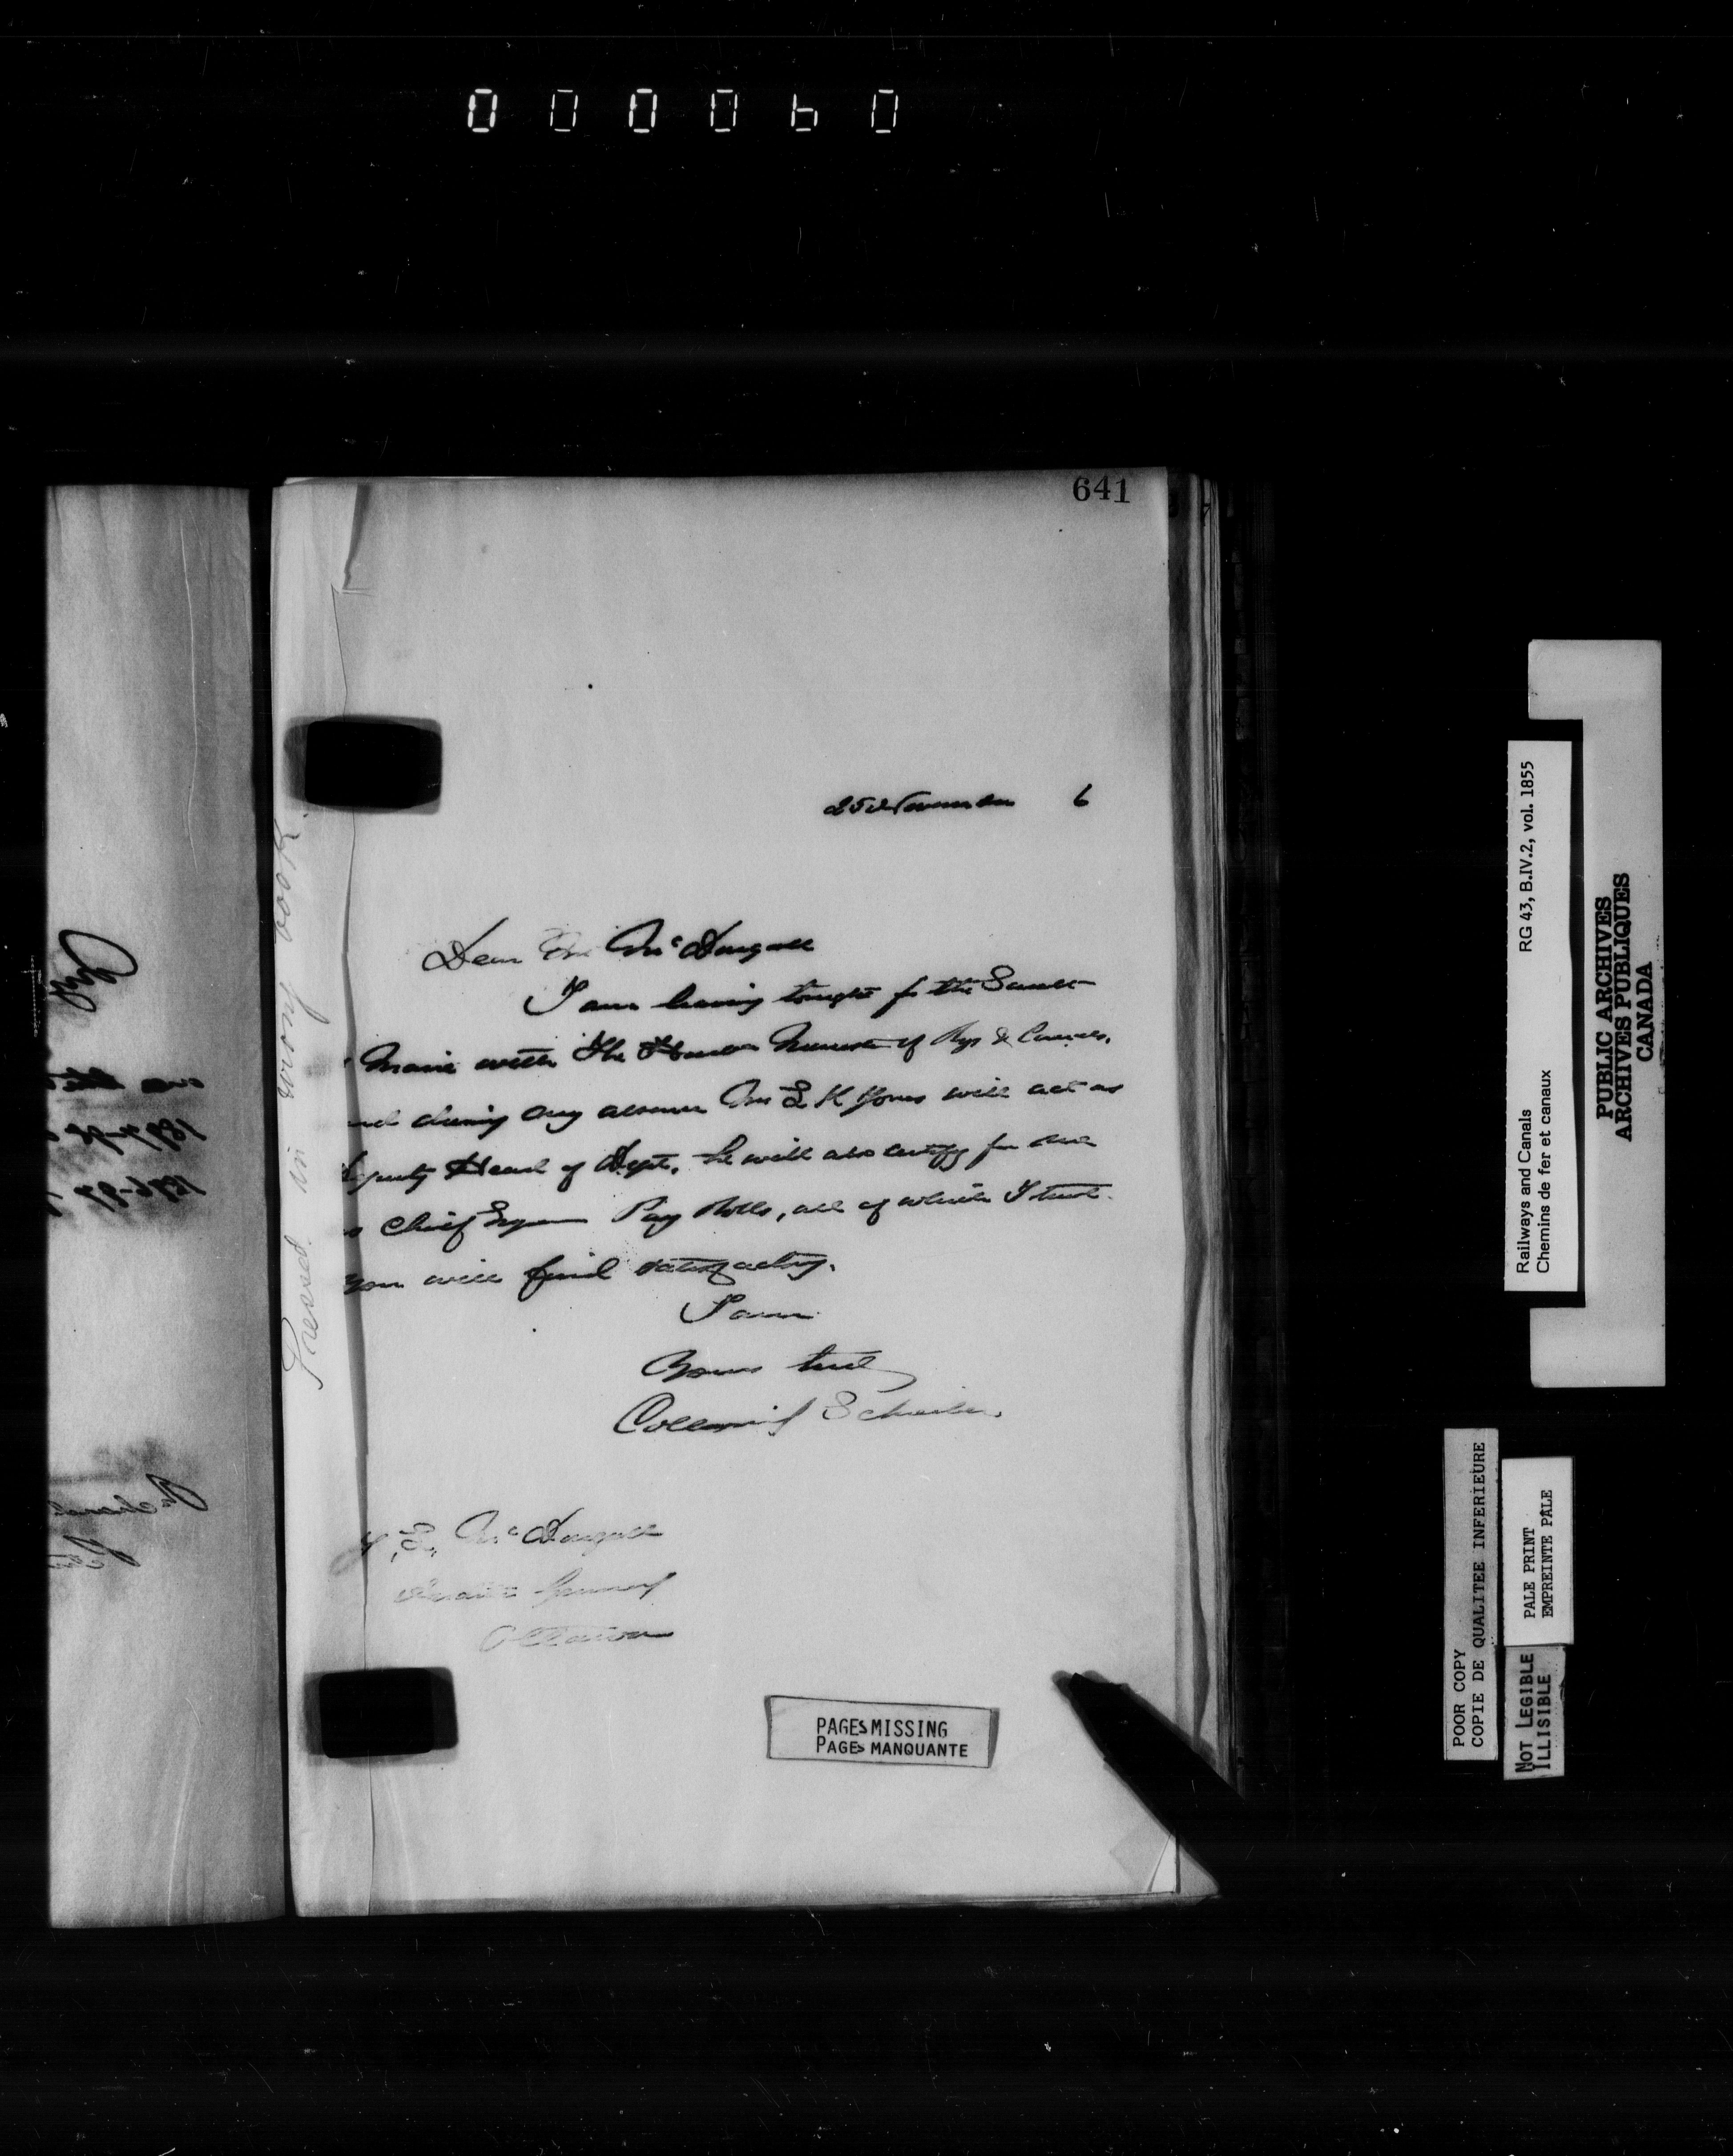 000060
641
25 November 6
Dear Mr McDougall
I am leaving tonight for the Sault
Marie with The Hon Minister of Rys & Canals,
and during my absence Mr L K Jones will act as
Deputy Head of Dept. he will also certify for me
as Chief Engr Pay Rolls, all of which I trust
you will find satisfactory.
I am
Yours truly
Collingwood Schreiber
J, L, McDougall
Auditor General
Ottawa
Pressed in wrong book.
PAGES MISSING
PAGES MANQUANTE
Railways and Canals RG 43, B.IV.2, vol. 1855
Chemins de fer et canaux
PUBLIC ARCHIVES
ARCHIVES PUBLIQUES
CANADA
POOR COPY
COPIE DE QUALITEE INFERIEURE
PALE PRINT
EMPREINTE PÂLE
NOT LEGIBLE
ILLISIBLE